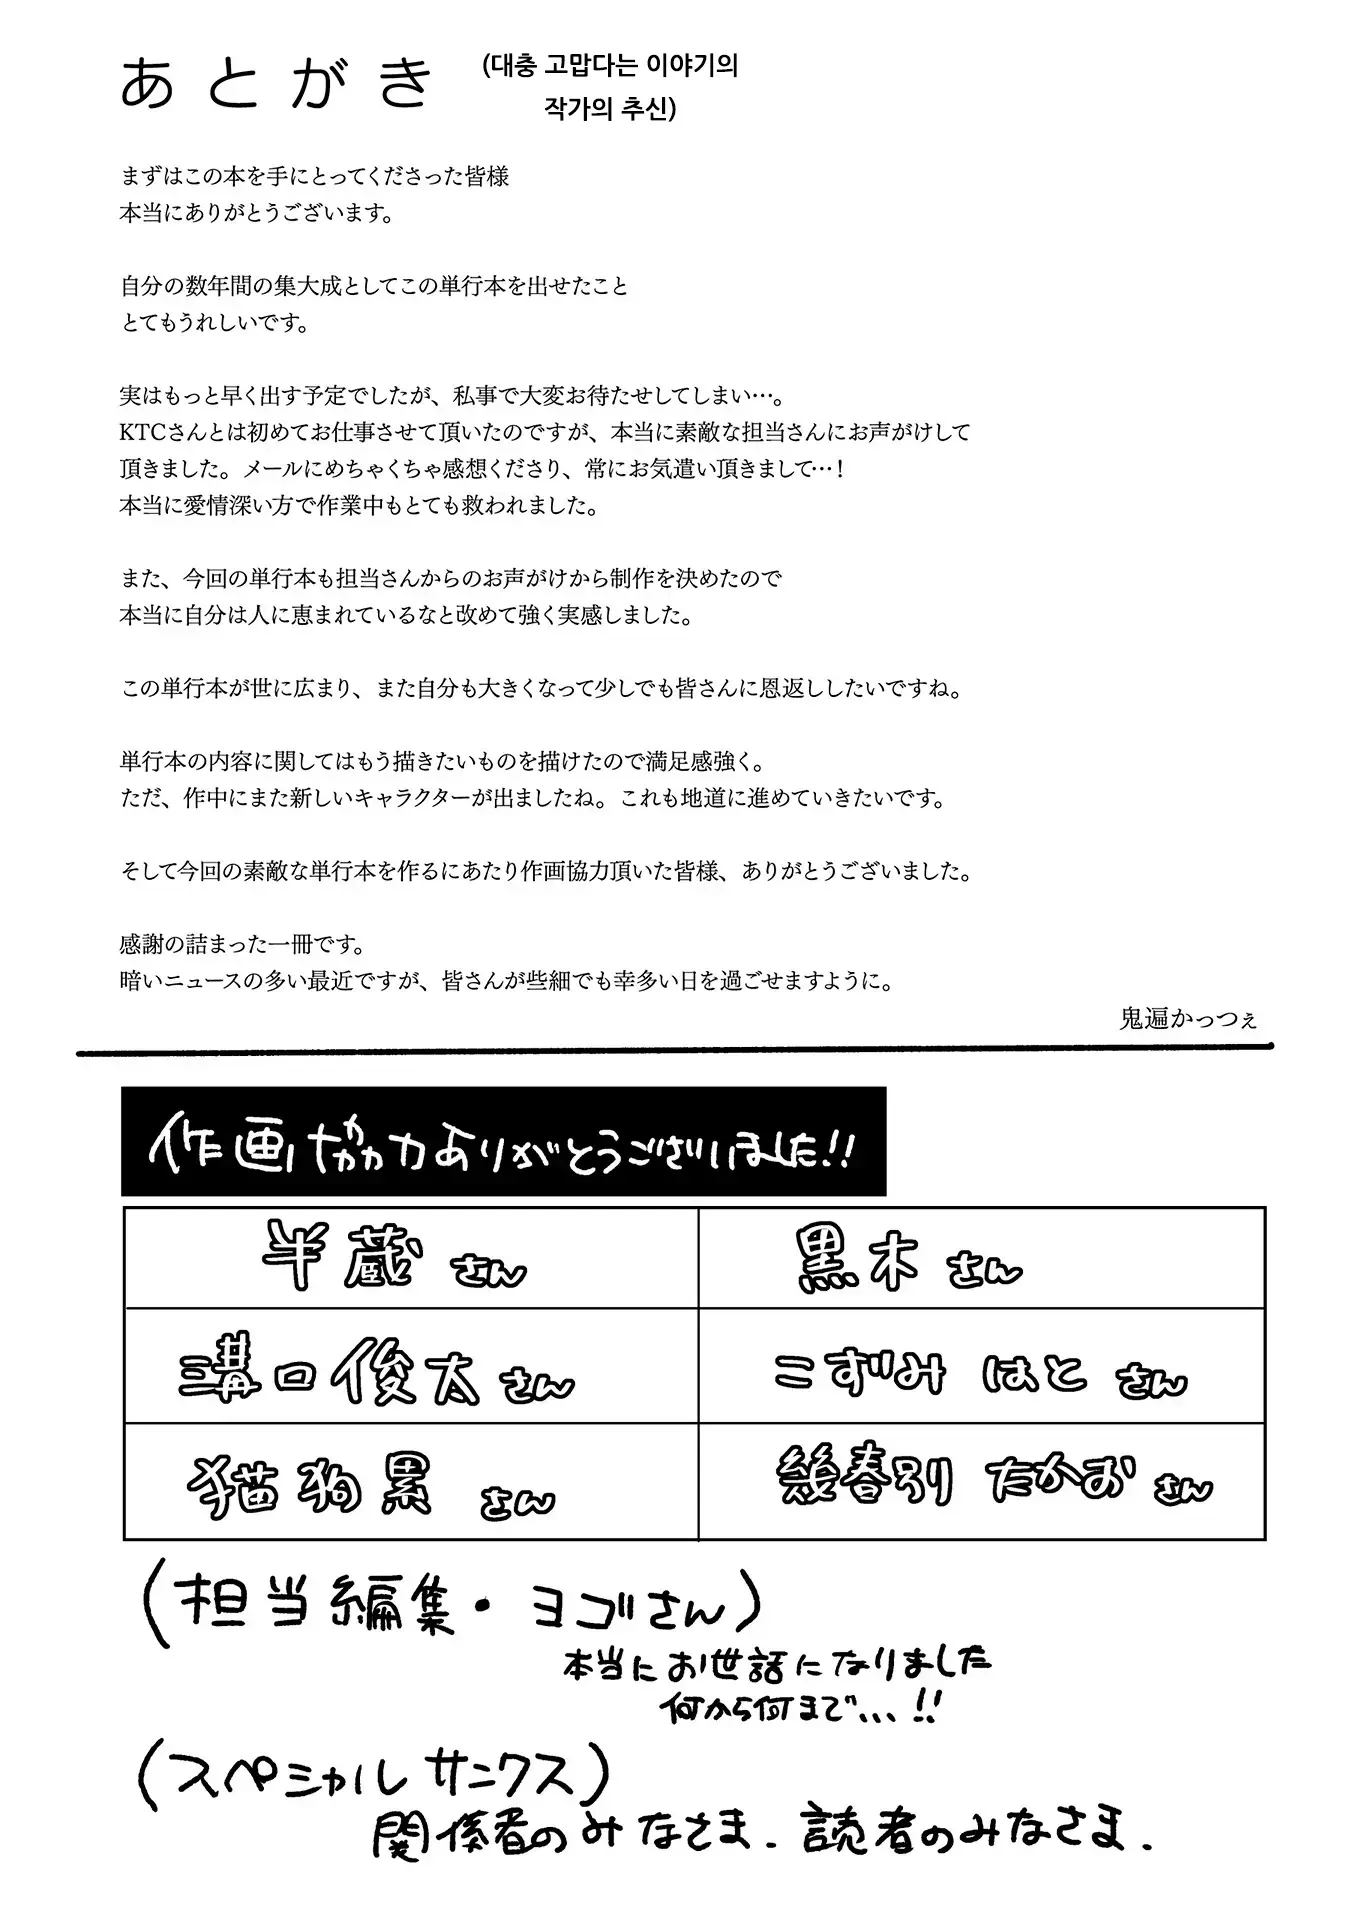 あとがき
(대충 고맙다는 이야기의
작가의 추신)
まずはこの本を手にとってくださった皆様
本当にありがとうございます。
自分の数年間の集大成としてこの単行本を出せたこと
とてもうれしいです。
実はもっと早く出す予定でしたが、私事で大変お待たせしてしまい…。
KTCさんとは初めてお仕事させて頂いたのですが、本当に素敵な担当さんにお声がけして
頂きました。メールにめちゃくちゃ感想くださり、常にお気遣い頂きまして…！
本当に愛情深い方で作業中もとても救われました。
また、今回の単行本も担当さんからのお声がけから制作を決めたので
本当に自分は人に恵まれているなと改めて強く実感しました。
この単行本が世に広まり、また自分も大きくなって少しでも皆さんに恩返ししたいですね。
単行本の内容に関してはもう描きたいものを描けたので満足感強く。
ただ、作中にまた新しいキャラクターが出ましたね。これも地道に進めていきたいです。
そして今回の素敵な単行本を作るにあたり作画協力頂いた皆様、ありがとうございました。
感謝の詰まった一冊です。
暗いニュースの多い最近ですが、皆さんが些細でも幸多い日を過ごせますように。
鬼遍かっつぇ
作画協力ありがとうございました!!
半蔵さん
黒木さん
溝口俊太さん
こずみ はと さん
猫狗累 さん
幾春別 たかお さん
(担当編集・ヨゴさん)
本当にお世話になりました
何から何まで...!!
(スペシャルサンクス)
関係者のみなさま. 読者のみなさま.